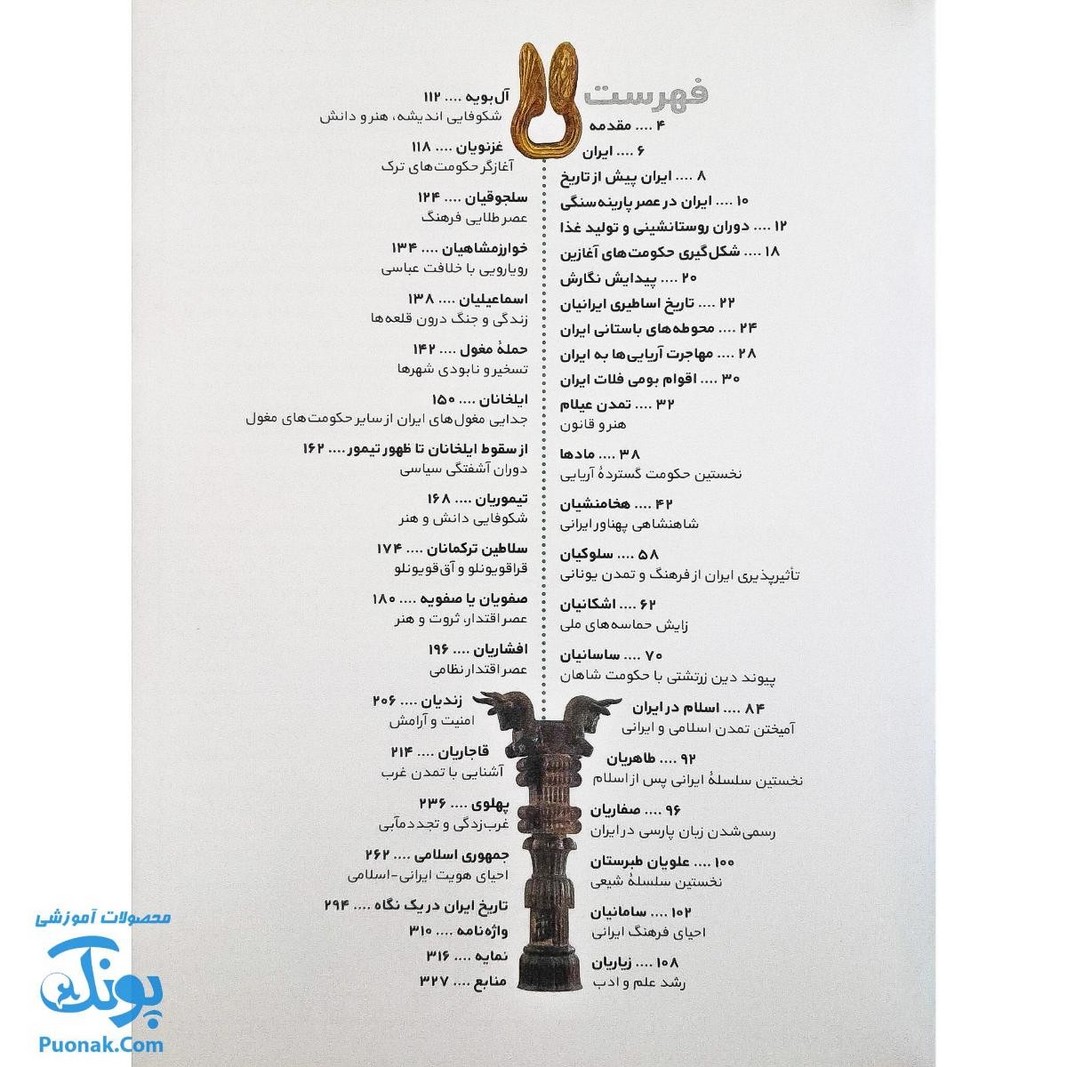 فهرست
۴ .... مقدمه
۶ .... ایران
۸ .... ایران پیش از تاریخ
۱۰ .... ایران در عصر پارینه‌سنگی
۱۲ .... دوران روستانشینی و تولید غذا
۱۸ .... شکل‌گیری حکومت‌های آغازین
۲۰ .... پیدایش نگارش
۲۲ .... تاریخ اساطیری ایرانیان
۲۴ .... محوطه‌های باستانی ایران
۲۸ .... مهاجرت آریایی‌ها به ایران
۳۰ .... اقوام بومی فلات ایران
۳۲ .... تمدن عیلام
هنر و قانون
۳۸ .... مادها
نخستین حکومت گستردهٔ آریایی
۴۲ .... هخامنشیان
شاهنشاهی پهناور ایرانی
۵۸ .... سلوکیان
تأثیرپذیری ایران از فرهنگ و تمدن یونانی
۶۲ .... اشکانیان
زایش حماسه‌های ملی
۷۰ .... ساسانیان
پیوند دین زرتشتی با حکومت شاهان
۸۴ .... اسلام در ایران
آمیختن تمدن اسلامی و ایرانی
۹۲ .... طاهریان
نخستین سلسلهٔ ایرانی پس از اسلام
۹۶ .... صفاریان
رسمی‌شدن زبان پارسی در ایران
۱۰۰ .... علویان طبرستان
نخستین سلسلهٔ شیعی
۱۰۲ .... سامانیان
احیای فرهنگ ایرانی
۱۰۸ .... زیاریان
رشد علم و ادب
آل‌بویه .... ۱۱۲
شکوفایی اندیشه، هنر و دانش
غزنویان .... ۱۱۸
آغازگر حکومت‌های ترک
سلجوقیان .... ۱۲۴
عصر طلایی فرهنگ
خوارزمشاهیان .... ۱۳۴
رویارویی با خلافت عباسی
اسماعیلیان .... ۱۳۸
زندگی و جنگ درون قلعه‌ها
حملهٔ مغول .... ۱۴۲
تسخیر و نابودی شهرها
ایلخانان .... ۱۵۰
جدایی مغول‌های ایران از سایر حکومت‌های مغول
از سقوط ایلخانان تا ظهور تیمور .... ۱۶۲
دوران آشفتگی سیاسی
تیموریان .... ۱۶۸
شکوفایی دانش و هنر
سلاطین ترکمانان .... ۱۷۴
قراقویونلو و آق‌قویونلو
صفویان یا صفویه .... ۱۸۰
عصر اقتدار، ثروت و هنر
افشاریان .... ۱۹۶
عصر اقتدار نظامی
زندیان .... ۲۰۶
امنیت و آرامش
قاجاریان .... ۲۱۴
آشنایی با تمدن غرب
پهلوی .... ۲۳۶
غرب‌زدگی و تجددمآبی
جمهوری اسلامی .... ۲۶۲
احیای هویت ایرانی-اسلامی
تاریخ ایران در یک نگاه .... ۲۹۴
واژه‌نامه .... ۳۱۰
نمایه .... ۳۱۶
منابع .... ۳۲۷
محصولات آموزشی
پونک
Puonak.Com